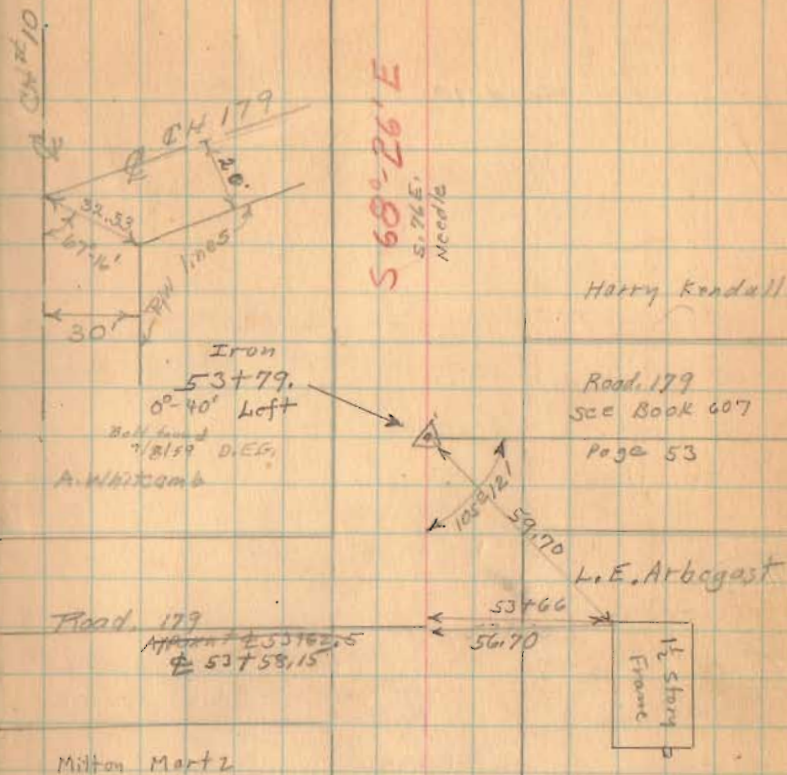 ℄ CH #10
℄ CH 179
20'
32.53
67-16'
R/W lines
30'
S 68°-26' E
S. 76 E.
Needle
Harry Kendall
Iron
53+79.
0°-40' Left
Bolt found
7/8/59 D.E.G.
A. Whitcamb
Road. 179
See Book 607
Page 53
105°-12'
59.70
L.E. Arbogast
53+66
56.70
Road. 179
℄ 53+62.5
℄ 53+58.15
1½ Story
Frame
Milton Martz